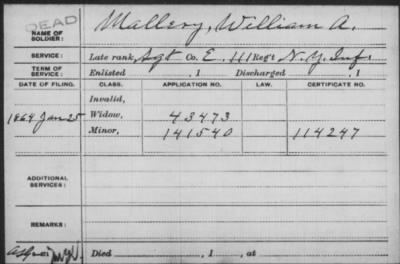 DEAD
NAME OF SOLDIER: Mallery, William A.
SERVICE: Late rank, Sgt Co. E, 111 Reg't N.Y. Inf.
TERM OF SERVICE: Enlisted , 1 Discharged , 1
DATE OF FILING. CLASS. APPLICATION NO. LAW. CERTIFICATE NO.
Invalid,
1864 Jan 25 Widow, 43473
Minor, 141540 114247
ADDITIONAL SERVICES:
REMARKS:
Died , 1 , at